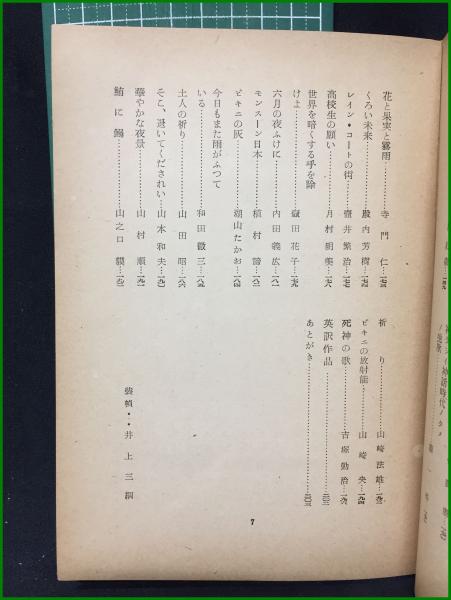 花と果実と霧雨…………寺門 仁…一七三
くろい未来…………殿内芳樹…一七四
レイン・コートの街…………壺井繁治…一七七
高校生の願い…………月村朝美…一七八
世界を暗くする手を除
けよ…………壷田花子…一七九
六月の夜ふけに…………内田義広…一八〇
モンスーン日本…………植村 諦…一八二
ビキニの灰…………湖山たかお…一八四
今日もまた雨がふつて
いる…………和田徹三…一八五
土人の祈り…………山田 昭…一八六
そこ、退いてくだされい…山本和夫…一九〇
華やかな夜景…………山村 順…一九一
鮪に鰯…………山之口 貘…一九二
祈り…………山崎法雄…一九三
ビキニの放射能…………山崎 央…一九四
死神の歌…………吉塚勤治…一九六
英訳作品…………二〇三
あとがき…………
装幀・・井上三綱
7